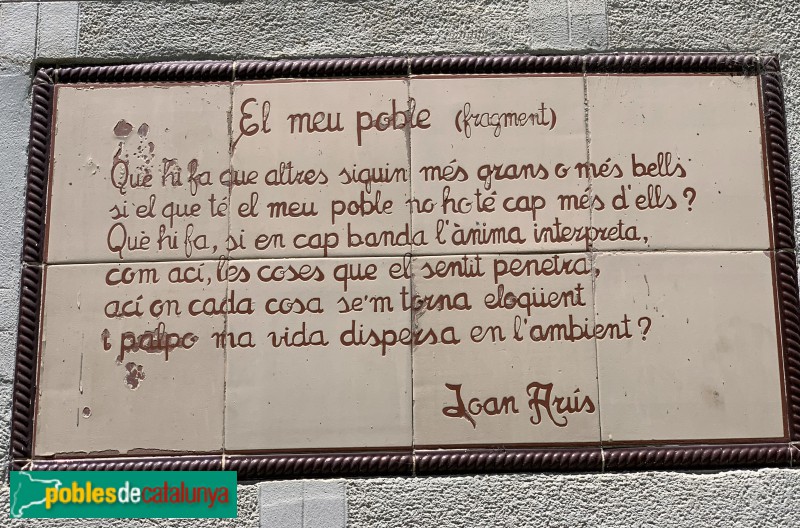 El meu poble (fragment)
Què hi fa que altres siguin més grans o més bells
si el que té el meu poble no ho té cap més d'ells?
Què hi fa, si en cap banda l'ànima interpreta,
com ací, les coses que el sentit penetra,
ací on cada cosa se'm torna eloqüent
i palpo ma vida dispersa en l'ambient?
Joan Arús
poblesdecatalunya